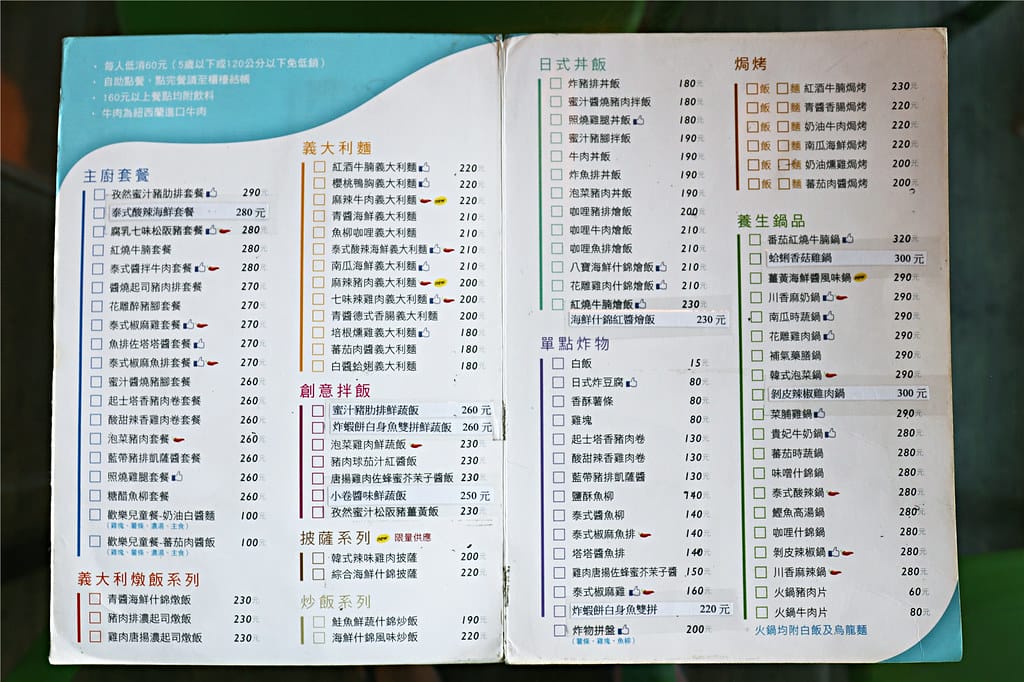 ・每人低消60元(5歲以下或120公分以下免低銷)
・自助點餐，點完餐請至櫃檯結帳
・160元以上餐點均附飲料
・牛肉為紐西蘭進口牛肉
主廚套餐
孜然蜜汁豬肋排套餐 290元
泰式酸辣海鮮套餐 280元
腐乳七味松阪豬套餐 280元
紅燒牛腩套餐 280元
泰式醬拌牛肉套餐 280元
醬燒起司豬肉排套餐 270元
花雕醉豬腳套餐 270元
泰式椒麻雞套餐 270元
魚排佐塔塔醬套餐 270元
泰式椒麻魚排套餐 270元
蜜汁醬燒豬腳套餐 260元
起士塔香豬肉卷套餐 260元
酸甜辣香雞肉卷套餐 260元
泡菜豬肉套餐 260元
藍帶豬排凱薩醬套餐 260元
照燒雞腿套餐 260元
糖醋魚柳套餐 260元
歡樂兒童餐-奶油白醬麵 100元
(雞塊、薯條、濃湯、主食)
歡樂兒童餐-蕃茄肉醬飯 100元
(雞塊、薯條、濃湯、主食)
義大利燉飯系列
青醬海鮮什錦燉飯 230元
豬肉排濃起司燉飯 230元
雞肉唐揚濃起司燉飯 230元
義大利麵
紅酒牛腩義大利麵 220元
櫻桃鴨胸義大利麵 220元
麻辣牛肉義大利麵 new 220元
青醬海鮮義大利麵 210元
魚柳咖哩義大利麵 210元
泰式酸辣海鮮義大利麵 210元
南瓜海鮮義大利麵 210元
麻辣豬肉義大利麵 new 200元
七味辣雞肉義大利麵 200元
青醬德式香腸義大利麵 200元
培根燻雞義大利麵 180元
蕃茄肉醬義大利麵 180元
白醬蛤蜊義大利麵 180元
創意拌飯
蜜汁豬肋排鮮蔬飯 260元
炸蝦餅白身魚雙拼鮮蔬飯 260元
泡菜雞肉鮮蔬飯 230元
豬肉球茄汁紅醬飯 230元
唐揚雞肉佐蜂蜜芥茉子醬飯 230元
小卷醬味鮮蔬飯 250元
孜然蜜汁松阪豬薑黃飯 230元
披薩系列 new 限量供應
韓式辣味雞肉披薩 200元
綜合海鮮什錦披薩 220元
炒飯系列
鮭魚鮮蔬什錦炒飯 190元
海鮮什錦風味炒飯 220元
日式丼飯
炸豬排丼飯 180元
蜜汁醬燒豬肉拌飯 180元
照燒雞腿丼飯 180元
蜜汁豬腳拌飯 190元
牛肉丼飯 190元
炸魚排丼飯 190元
泡菜豬肉丼飯 190元
咖哩豬排燴飯 200元
咖哩牛肉燴飯 210元
咖哩魚排燴飯 210元
八寶海鮮什錦燴飯 210元
花雕雞肉什錦燴飯 210元
紅燒牛腩燴飯 230元
海鮮什錦紅醬燴飯 230元
單點炸物
白飯 15元
日式炸豆腐 80元
香酥薯條 80元
雞塊 80元
起士塔香豬肉卷 130元
酸甜辣香雞肉卷 130元
藍帶豬排凱薩醬 130元
鹽酥魚柳 140元
泰式醬魚柳 140元
泰式椒麻魚排 140元
塔塔醬魚排 140元
雞肉唐揚佐蜂蜜芥茉子醬 150元
泰式椒麻雞 160元
炸蝦餅白身魚雙拼 220元
炸物拼盤 200元
(薯條、雞塊、魚柳)
焗烤
飯 麵 紅酒牛腩焗烤 230元
飯 麵 青醬香腸焗烤 220元
飯 麵 奶油牛肉焗烤 220元
飯 麵 南瓜海鮮焗烤 220元
飯 麵 奶油燻雞焗烤 200元
飯 麵 蕃茄肉醬焗烤 200元
養生鍋品
番茄紅燒牛腩鍋 320元
蛤蜊香菇雞鍋 300元
薑黃海鮮醬風味鍋 new 290元
川香麻奶鍋 290元
南瓜時蔬鍋 290元
花雕雞肉鍋 290元
補氣藥膳鍋 290元
韓式泡菜鍋 290元
剝皮辣椒雞肉鍋 300元
菜脯雞鍋 290元
貴妃牛奶鍋 280元
蕃茄時蔬鍋 280元
味噌什錦鍋 280元
泰式酸辣鍋 280元
鰹魚高湯鍋 280元
咖哩什錦鍋 280元
剝皮辣椒鍋 280元
川香麻辣鍋 280元
火鍋豬肉片 60元
火鍋牛肉片 80元
火鍋均附白飯及烏龍麵